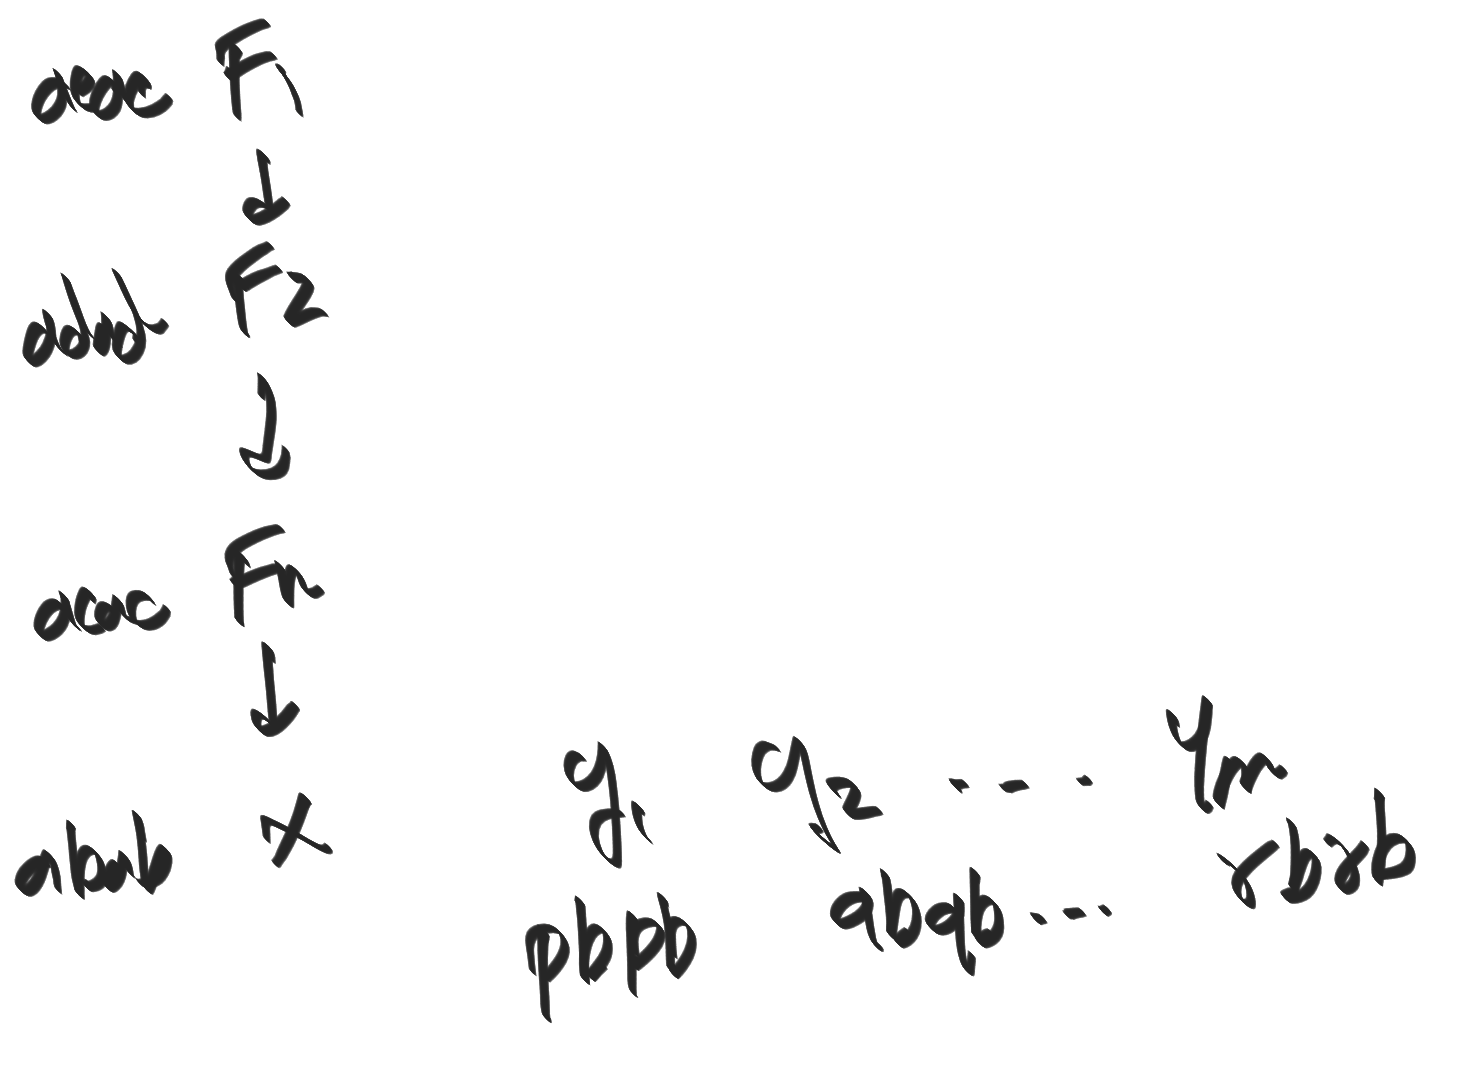 acac F1
↓
adad F2
↓
acac Fn
↓
abab X y1 y2 --- ym
pbpb qbqb --- rbrb